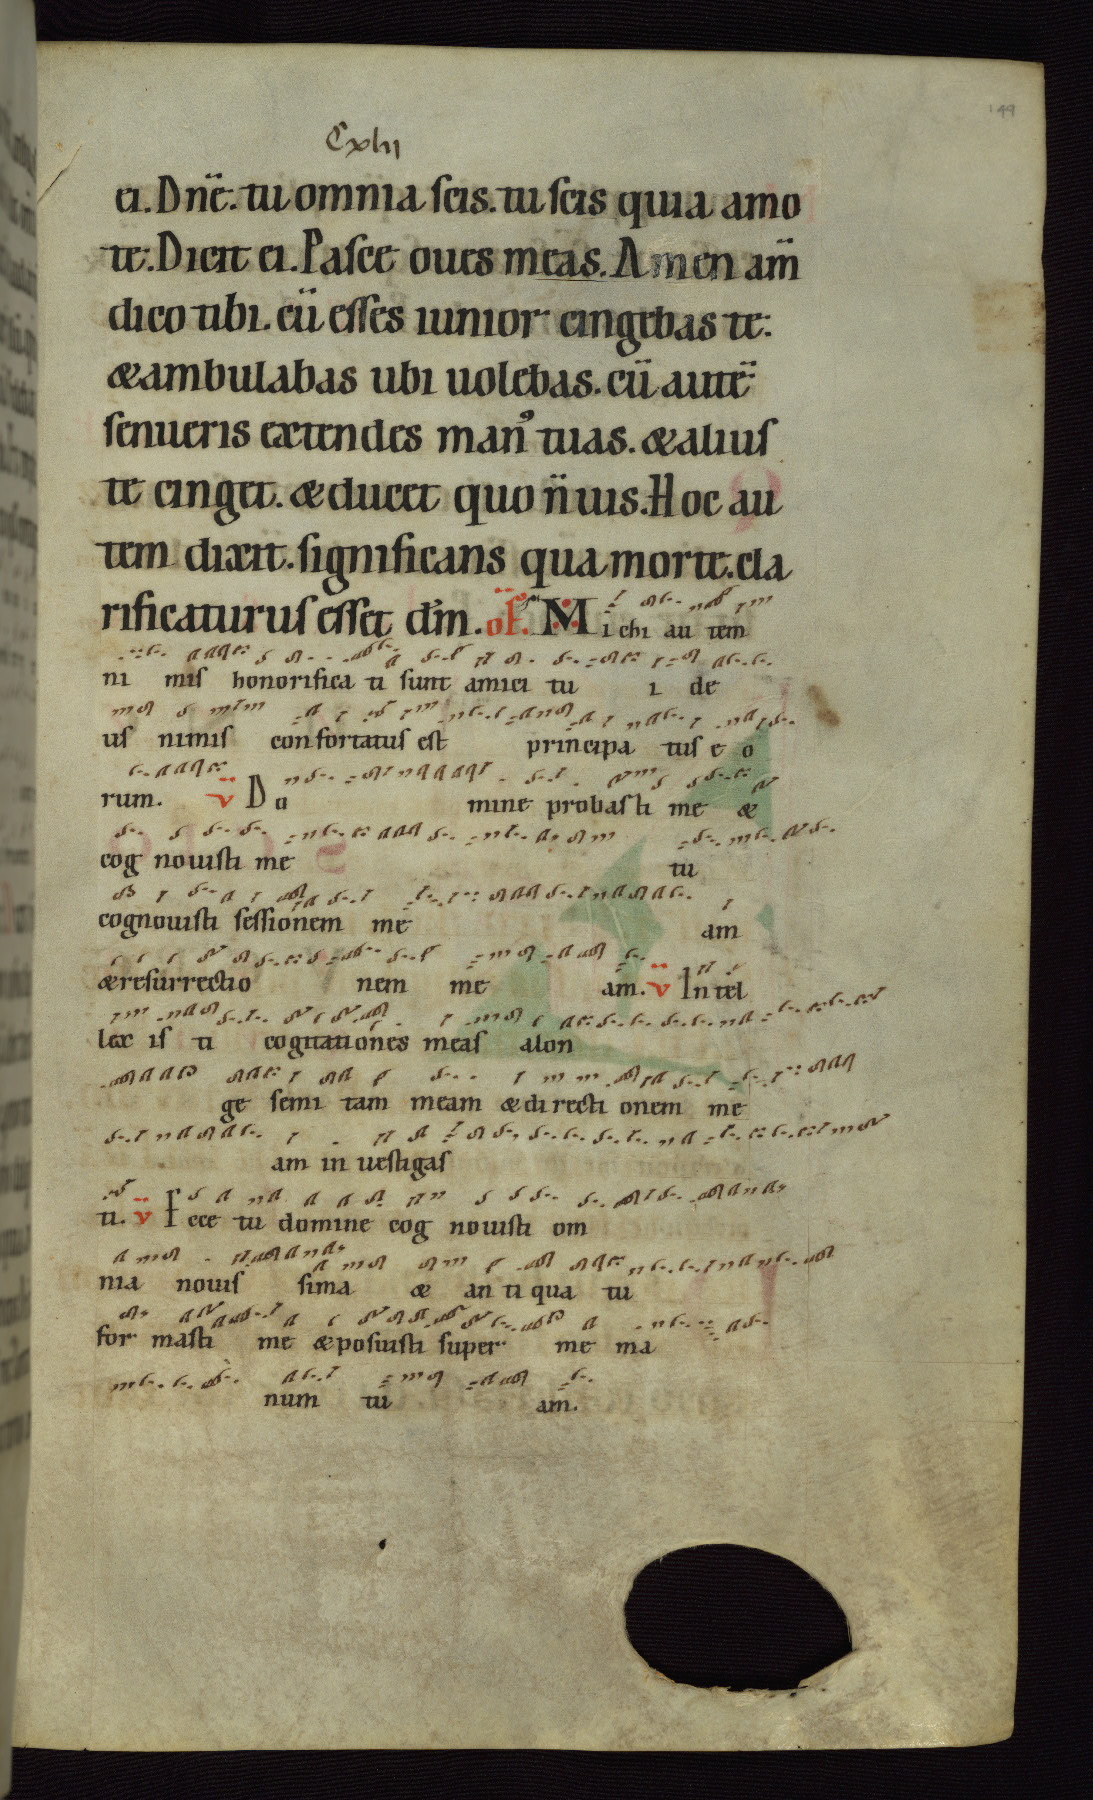 149
Cxlii
ei. Dn̄e. tu omnia scis. tu scis quia amo
te. Dicit ei. Pasce oues meas. Amen am̄
dico tibi. cū esses iunior cingebas te:
&ambulabas ubi uolebas. cū autē
senueris extendes man᾿ tuas. &alius
te cinget. &ducet quo n̄ uis. Hoc au
tem dixit. significans qua morte. cla
rificaturus esset dm̄. of. Michi au tem
ni mis honorifica ti sunt amici tu i de
us nimis confortatus est principa tus e o
rum. v Do mine probasti me &
cog nouisti me tu
cognouisti sessionem me am
&resurrectio nem me am. v Intel
lex is ti cogitationes meas alon
ge semi tam meam &di recti onem me
am in uestigas
ti. v Ecce tu domine cog nouisti om
nia nouis sima & an ti qua tu
for masti me &posuisti super me ma
num tu am.